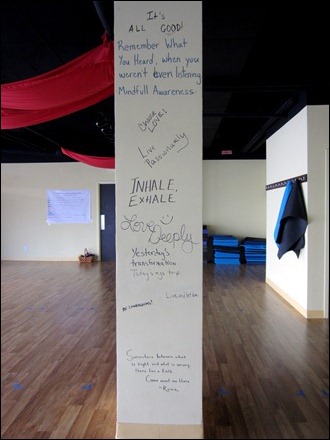 It's
ALL GOOD!
Remember What
You Heard, when you
weren't Even listening
Mindfull Awareness
Choose
LOVE!
Live
Passionately
INHALE,
EXHALE
Love
Deeply
Yesterday's
transformation
Today's ego trip
BE COURAGEOUS!
Somewhere between what
is right, and what is wrong
there lies a field.
Come meet me there
~Rumi